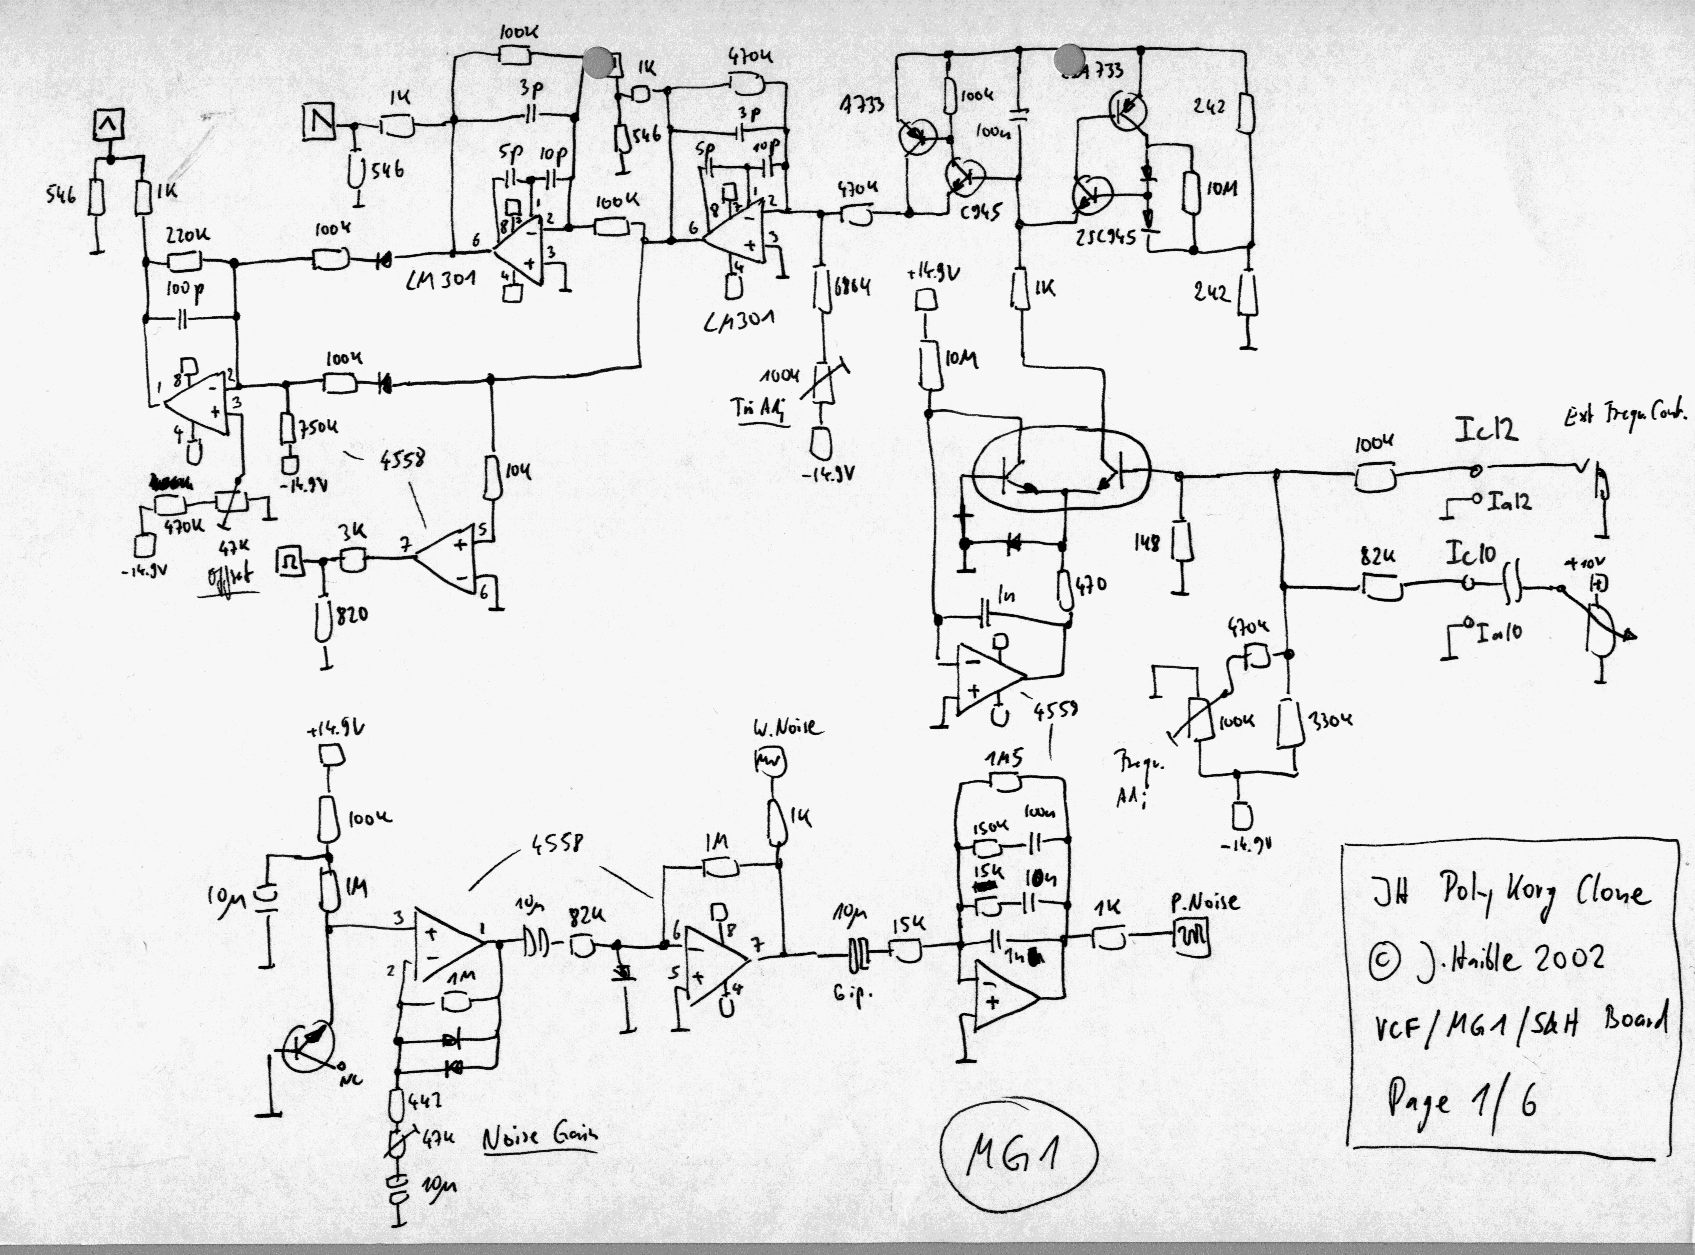 100k
3p
5p
10p
1K
546
1K
546
1K
546
470k
3p
5p
10p
A733
100k
100n
A733
242
10M
C945
2SC945
242
1K
220k
100p
100k
100k
LM301
LM301
470k
680k
100k
Tri Adj
-14.9V
+14.9V
10M
100k
750k
-14.9V
4558
10k
470K
-14.9V
47K
Offset
3K
820
100k
Ic12
Ext Frequ. Cont.
Ia12
148
82K
Ic10
+10V
Ia10
470
1n
4558
470k
100K
330k
Frequ.
Adj
-14.9V
+14.9V
100k
10µ
1M
NC
4558
1M
10µ
82K
442
47K
Noise Gain
10µ
W.Noise
1K
1M
10µ
bip.
15K
1M5
150k
100n
15k
10n
1n
1K
P.Noise
MG1
JH Poly Korg Clone
© J.Haible 2002
VCF/MG1/S&H Board
Page 1/6